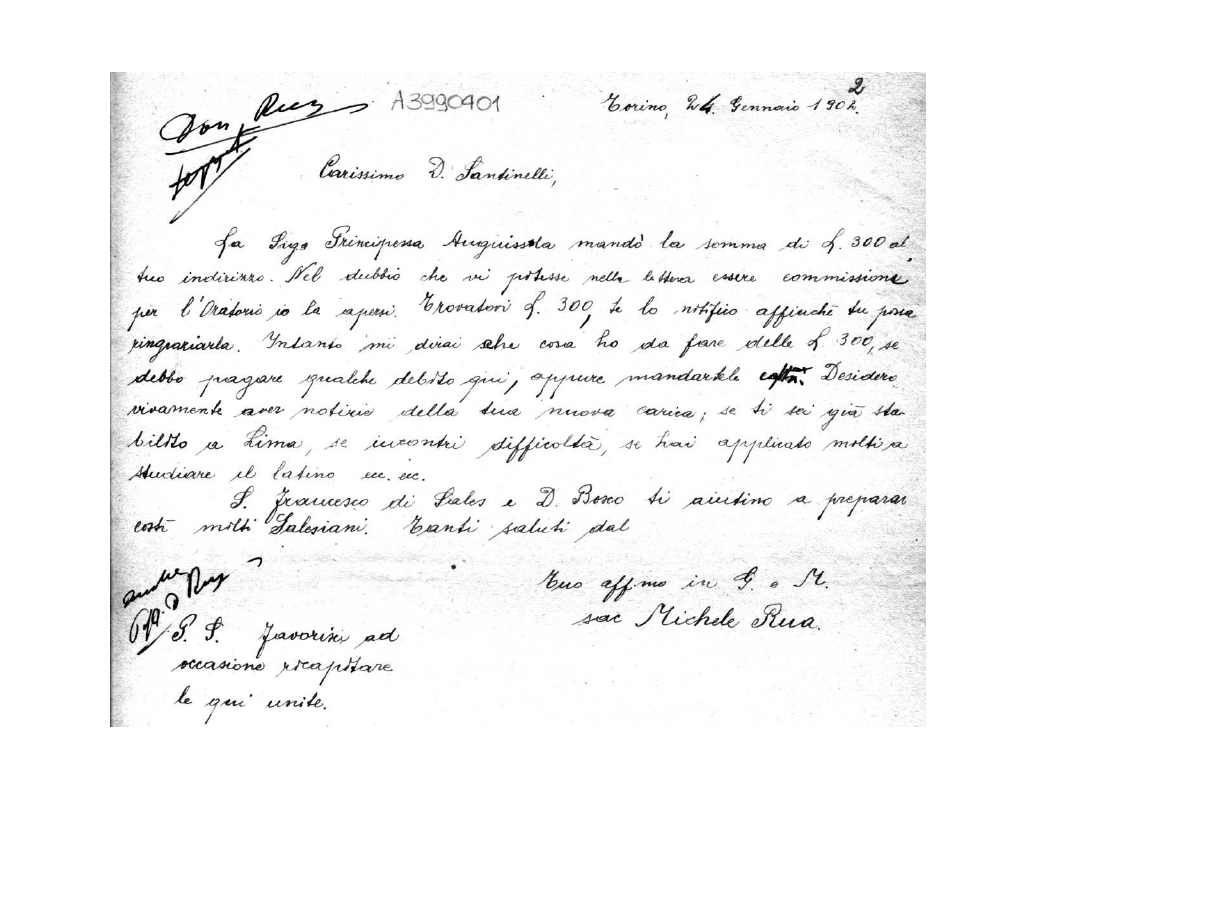 2
A3990401
Torino, 24 Gennaio 1902.
Don Rua
Carissimo D. Santinelli,
La Siga Principessa Anguissola mandò la somma di L. 300 al
tuo indirizzo. Nel dubbio che vi potesse nella lettera essere commissione
per l'Oratorio io la apersi. Trovatovi L. 300, te lo notifico affinchè tu possa
ringraziarla. Intanto mi dirai che cosa ho da fare delle L. 300, se
debbo pagare qualche debito qui, oppure mandartele costà. Desidero
vivamente aver notizie della tua nuova carica; se ti sei già sta-
bilito a Lima, se incontri difficoltà, se hai applicato molti a
studiare il latino ecc. ecc.
S. Francesco di Sales e D. Bosco ti aiutino a preparar
costì molti Salesiani. Tanti saluti dal
Tuo aff.mo in G. e M.
sac Michele Rua.
P. S. Favorisci ad
occasione ricapitare
le qui unite.